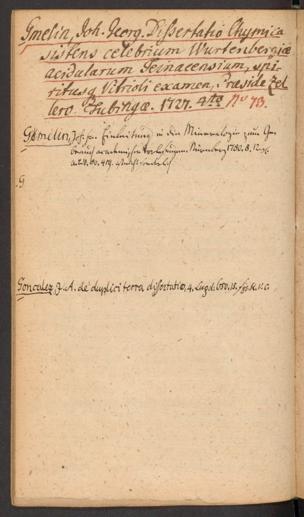 Gmelin, Joh. Georg. Dissertatio Chymica
sistens celebrium Wurtenbergiæ
acidularum Teinacensium, spi-
ritusq Vitrioli examen, Præside Zel
lero. Tubingæ. 1727. 4to No 73.
Gmelin, Joh. Fr. Einleitung in die Mineralogie zum Ge-
brauch academischer Vorlesungen. Nürnberg 1780. 8.
G
Gonzalez, J. A. de duplici terra dissertatio, 4. Lugd. bro.